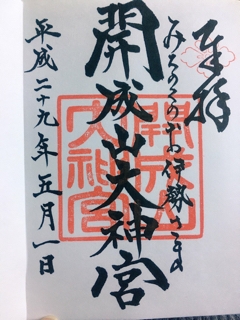 奉拝
みちのくのお伊勢さま
開成山大神宮
平成二十九年五月一日
開成山
大神宮